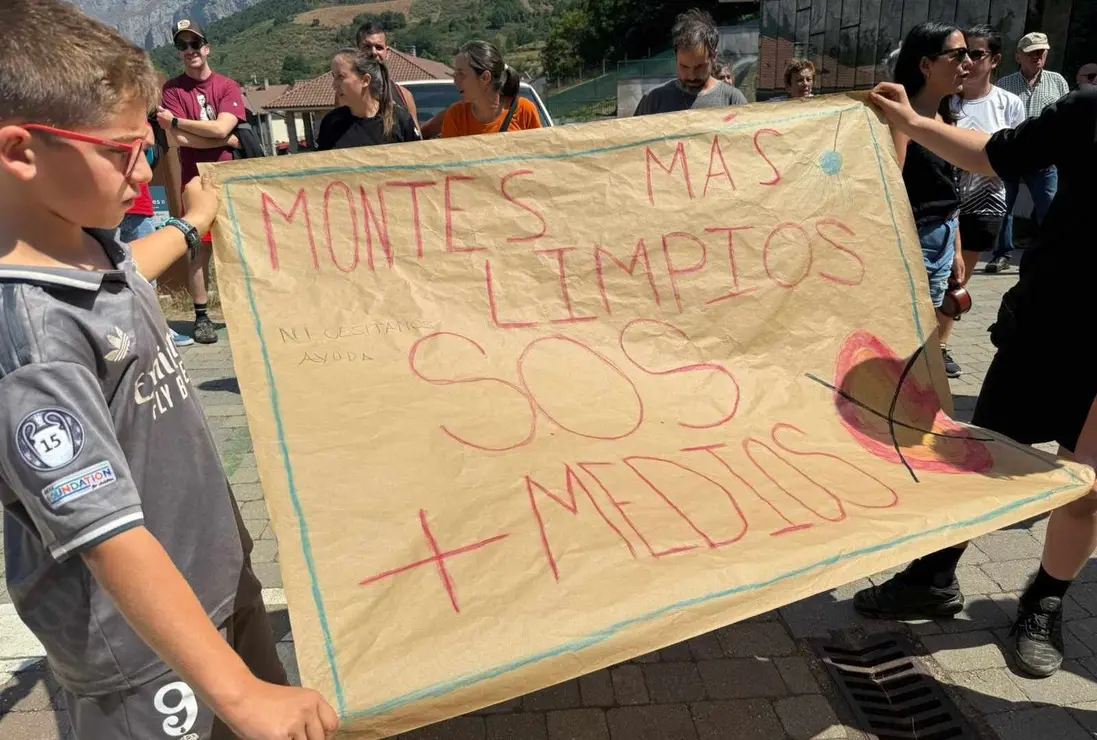 MONTES MÁS
LIMPIOS
NI CESITAMOS
AYUDA
SOS
+ MEDIOS
15
FOUNDATION
FLY BE
9